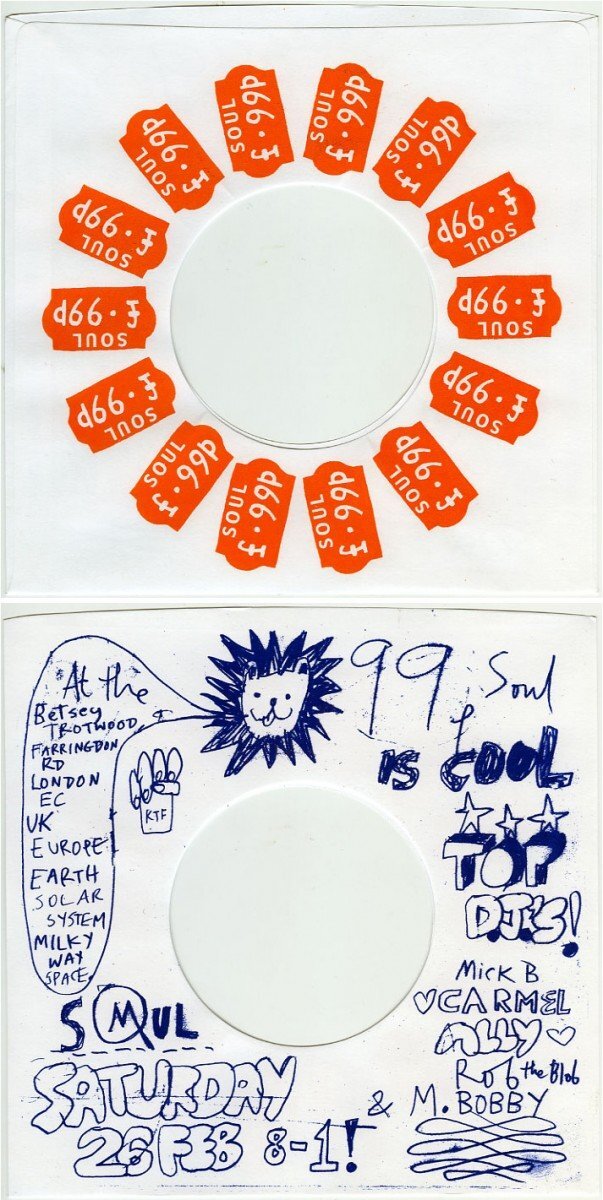 SOUL
£.99p
SOUL
£.99p
SOUL
£.99p
SOUL
£.99p
SOUL
£.99p
SOUL
£.99p
SOUL
£.99p
SOUL
£.99p
SOUL
£.99p
SOUL
£.99p
SOUL
£.99p
SOUL
£.99p
SOUL
£.99p
SOUL
£.99p
At the
Betsey
TROTWOOD,
FARRINGDON
RD
LONDON
EC
UK
EUROPE
EARTH
SOLAR
SYSTEM
MILKY
WAY
SPACE.
KTF
99p Soul
IS COOL
TOP
D.J.'S!
Mick B
♡CARMEL
ALLY♡
Rob the Blob
& M. BOBBY
SⓂUL
SATURDAY
26 FEB 8-1!